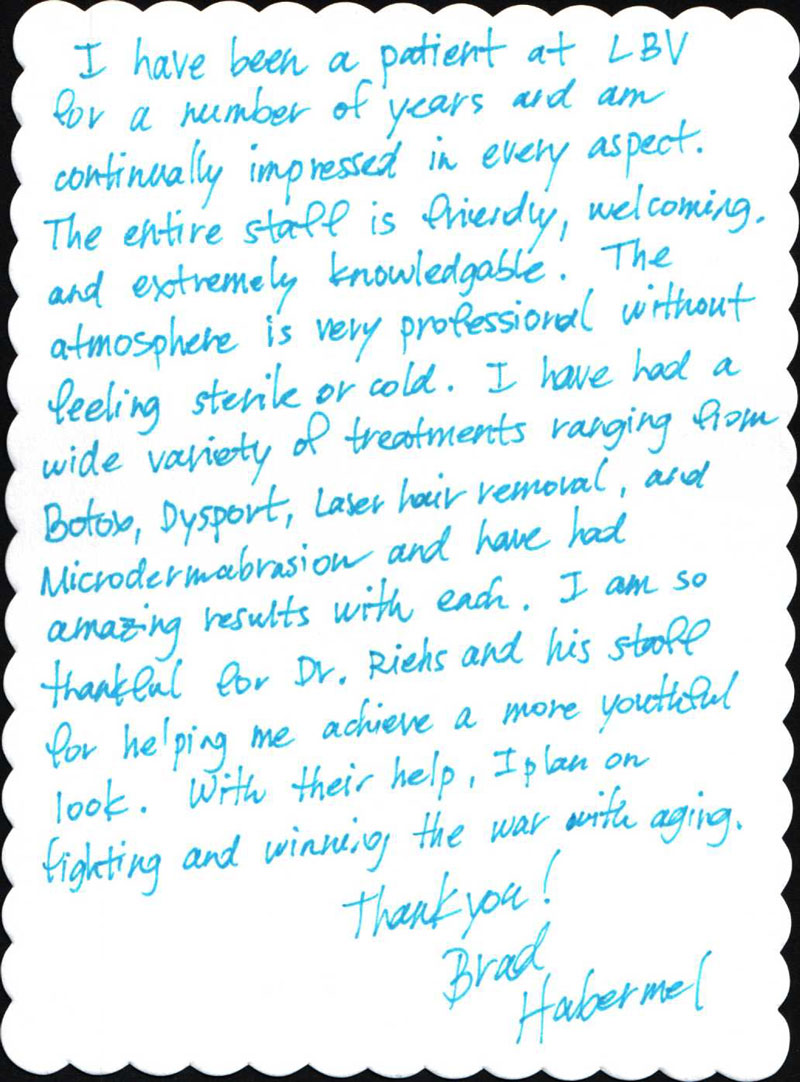 I have been a patient at LBV
for a number of years and am
continually impressed in every aspect.
The entire staff is friendly, welcoming,
and extremely knowledgable. The
atmosphere is very professional without
feeling sterile or cold. I have had a
wide variety of treatments ranging from
Botox, Dysport, Laser hair removal, and
Microdermabrasion and have had
amazing results with each. I am so
thankful for Dr. Riehs and his staff
for helping me achieve a more youthful
look. With their help, I plan on
fighting and winning the war with aging.
Thank you!
Brad
Habermel